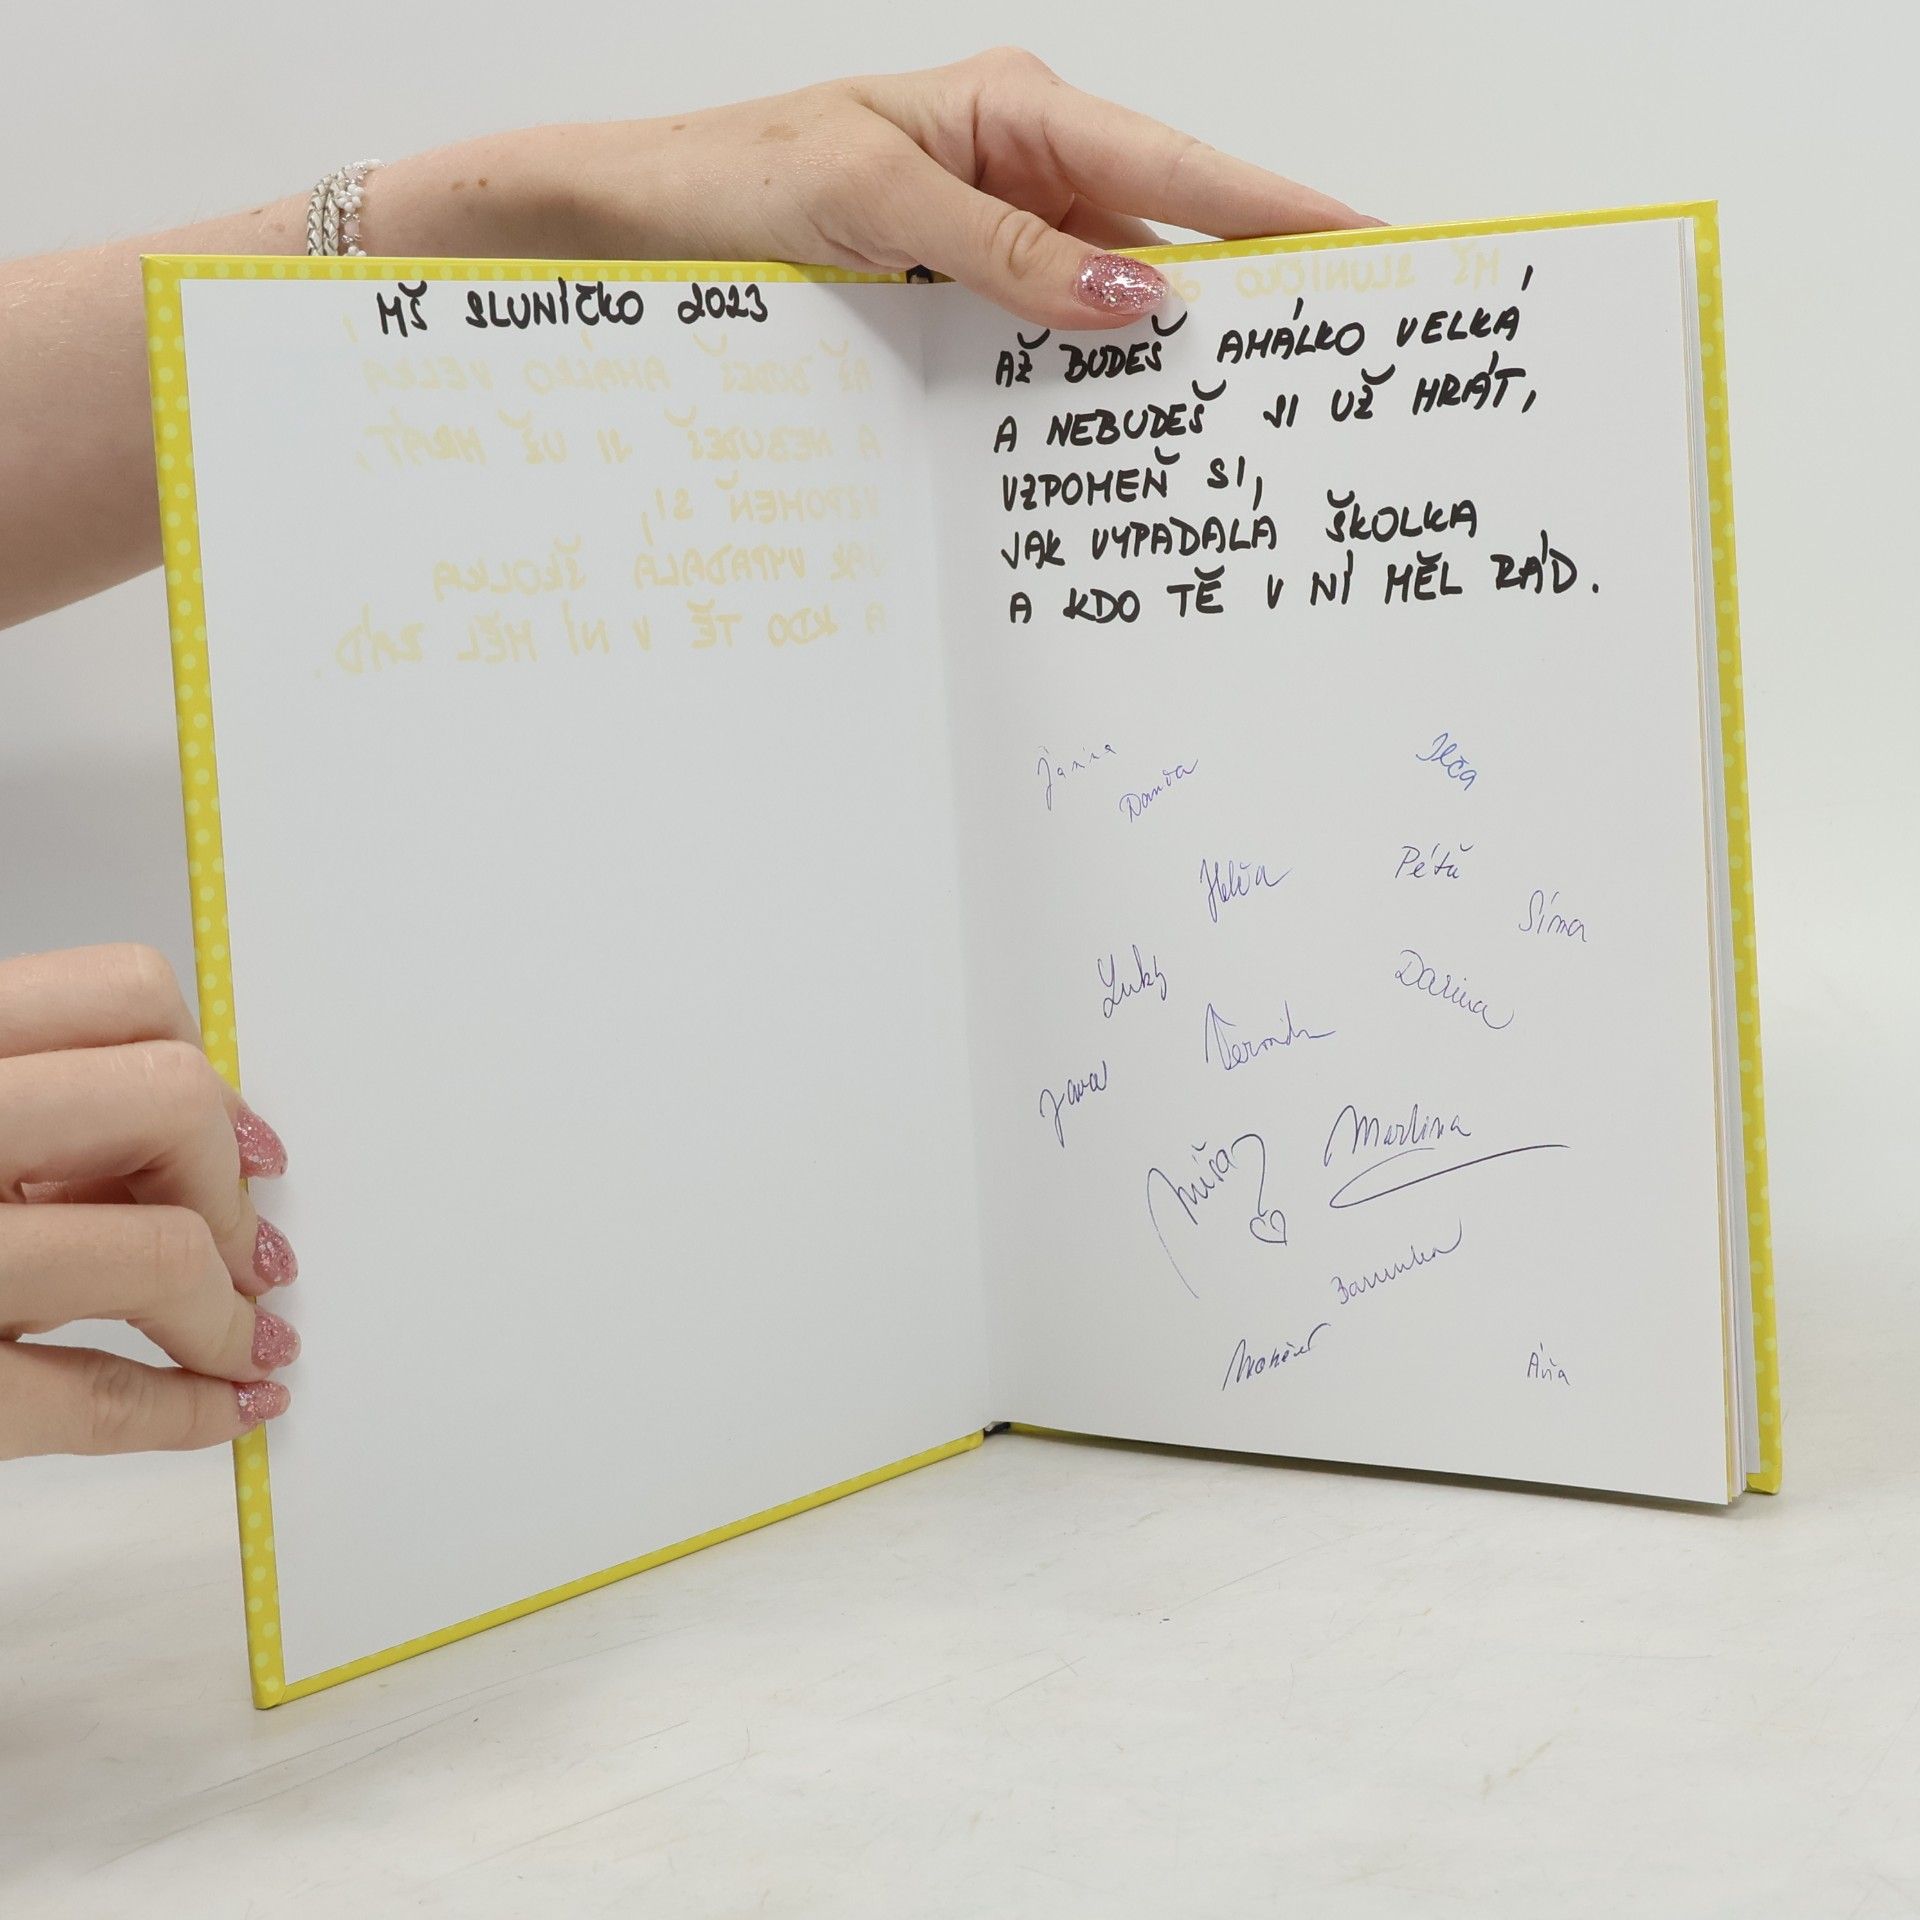 MŠ SLUNÍČKO 2023
AŽ BUDEŠ AMÁLKO VELKÁ
A NEBUDEŠ SI UŽ HRÁT,
VZPOMEŇ SI,
JAK VYPADALA ŠKOLKA
A KDO TĚ V NÍ MĚL RÁD.
Janina
Danča
Ilča
Helča
Péťa
Síma
Luky
Darina
Veronika
Jana
Martina
Míša
Barunka
Áňa